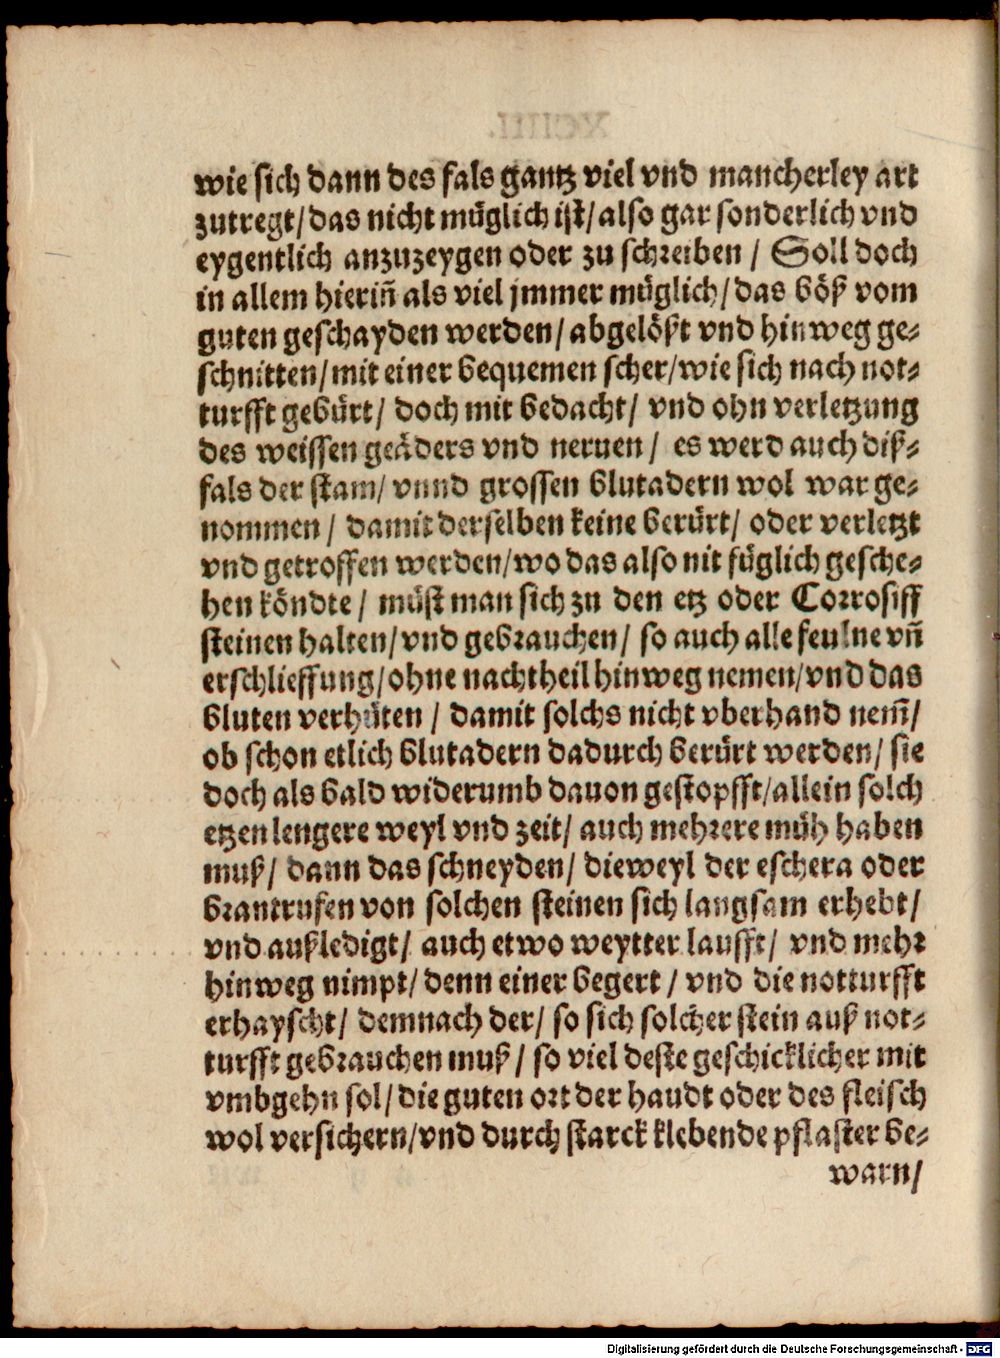 wie sich dann des fals gantz viel vnd mancherley art
zutregt/ das nicht müglich ist/ also gar sonderlich vnd
eygentlich anzuzeygen oder zu schreiben / Soll doch
in allem hieriñ als viel jmmer müglich/ das böß vom
guten geschayden werden/ abgelößt vnd hinweg ge-
schnitten/ mit einer bequemen scher/ wie sich nach not-
turfft gebürt/ doch mit bedacht/ vnd ohn verletzung
des weissen geäders vnd neruen / es werd auch diß-
fals der stam/ vnnd grossen blutadern wol war ge-
nommen / damit derselben keine berürt/ oder verletzt
vnd getroffen werden/ wo das also nit füglich gesche-
hen köndte / müst man sich zu den etz oder Corrosiff
steinen halten/ vnd gebrauchen/ so auch alle feulne vñ
erschlieffung/ ohne nachtheil hinweg nemen/ vnd das
bluten verhüten / damit solchs nicht vberhand nem̃/
ob schon etlich blutadern dadurch berürt werden/ sie
doch als bald widerumb dauon gestopfft/ allein solch
etzen lengere weyl vnd zeit/ auch mehrere müh haben
muß/ dann das schneyden/ dieweyl der eschera oder
brantrufen von solchen steinen sich langsam erhebt/
vnd außledigt/ auch etwo weytter laufft/ vnd mehr
hinweg nimpt/ denn einer begert / vnd die notturfft
erhayscht/ demnach der/ so sich solcher stein auß not-
turfft gebrauchen muß / so viel deste geschicklicher mit
vmbgehn sol/ die guten ort der haudt oder des fleisch
wol versichern/ vnd durch starck klebende pflaster be-
warn/
Digitalisierung gefördert durch die Deutsche Forschungsgemeinschaft - DFG